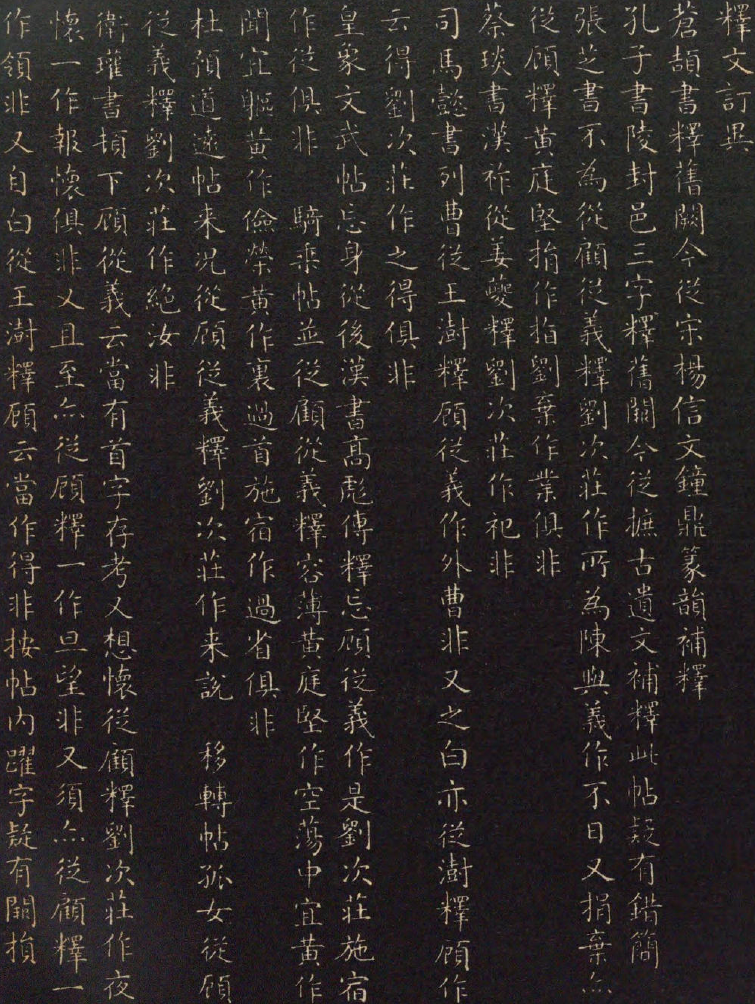 釋文訂異
蒼頡書釋舊闕今從宋楊信文鐘鼎篆韻補釋
孔子書陵封邑三字釋舊闕今從摭古遺文補釋此帖疑有錯簡
張芝書不為從顧從義釋劉次莊作所為陳與義作不日又捐棄亦
從顧釋黃庭堅捐作指劉棄作業俱非
蔡琰書漢祚從姜夔釋劉次莊作祀非
司馬懿書列曹從王澍釋顧從義作外曹非又之白亦從澍釋顧作
云得劉次莊作之得俱非
皇象文武帖忘身從後漢書高彪傳釋忘顧從義作是劉次莊施宿
作從俱非　騎乘帖並從顧從義釋容薄黃庭堅作空蕩中宜黃作
聞宜軀黃作儉榮黃作裏過首施宿作過省俱非
杜預道遠帖来況從顧從義釋劉次莊作来說　移轉帖孤女從顧
從義釋劉次莊作絶汝非
衛瓘書頓下顧從義云當有首字存考又想懷從顧釋劉次莊作夜
懷一作報懷俱非又且至亦從顧釋一作旦望非又須亦從顧釋一
作領非又自白從王澍釋顧云當作得非按帖内躍字疑有闕損